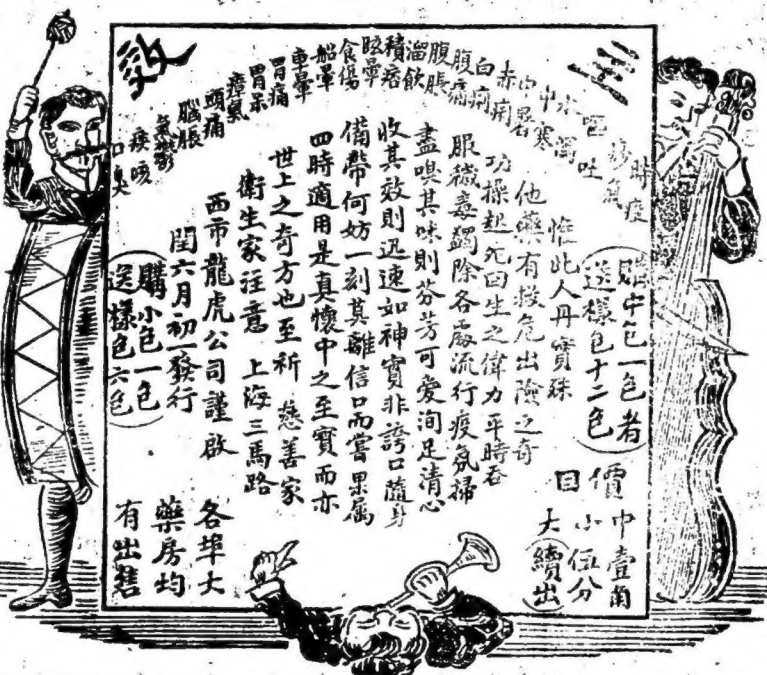 主效
時疫
痧氣
嘔吐
水瀉
中寒
中暑
赤痢
白痢
腹痛
腹脹
溜飲
積痞
眩暈
食傷
船暈
車暈
胃痛
胃呆
瘴氣
頭痛
腦脹
氣鬱
痰咳
口臭
購中包一包者
送樣包十二包
價目
中壹角
小伍分
大續出
惟此人丹寶珠
他藥有救危出險之奇
功操起死回生之偉力平時吞
服穢毒蠲除各處流行疫氛掃
盡嗅其味則芬芳可愛洵足清心
收其效則迅速如神實非誇口隨身
備帶何妨一刻莫離信口而嘗果屬
四時適用是真懷中之至寶而亦
世上之奇方也至祈 慈善家
衛生家注意 上海三馬路
西市龍虎公司謹啟
閏六月初一發行
購小包一包
送樣包六包
各埠大
藥房均
有出售